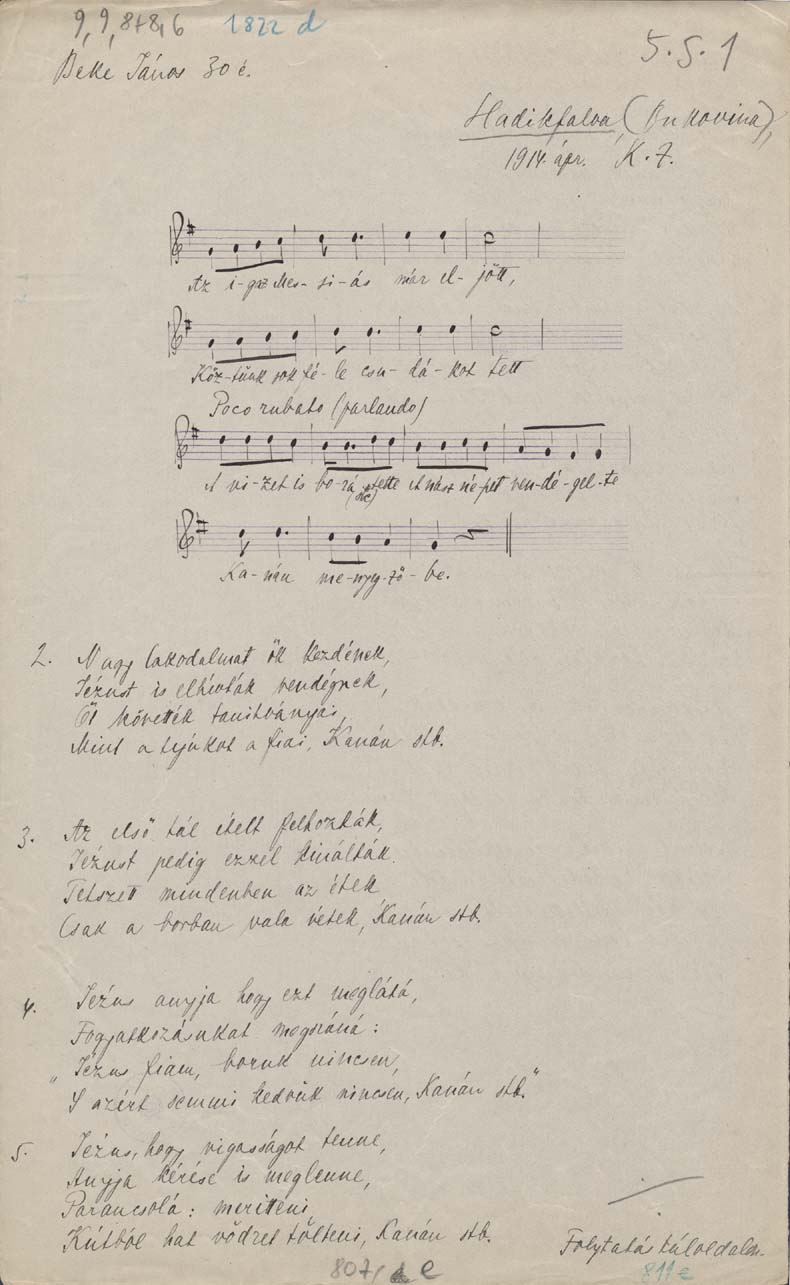 9, 9, 8+8, 6 1822 d
5.5.1
Beke János 30 é.
Hadikfalva, (Bukovina),
1914. ápr. K. Z.
Az i-gaz Mes-si-ás már el-jött,
Köz-tünk sok fé-le csu-dá-kot tett
Poco rubato (parlando)
A vi-zet is bo-rá tette A násznépet ven-dé-gel-te
(sic)
Ka-nán me-nyeg-ző-be.
2. Nagy lakodalmat ők kezdének,
Jézust is elhívták vendégnek,
Őt követték tanitványai,
Mint a tyúkot a fiai, Kanán stb.
3. Az első tál ételt felhozták,
Jézust pedig ezzel kinálták.
Tetszett mindenben az étek
Csak a borban vala vétek, Kanán stb.
4. Jézus anyja hogy ezt meglátá,
Fogyatkozásukat megszáná:
„Jézus fiam, boruk nincsen,
S azért semmi kedvük nincsen, Kanán stb."
5. Jézus, hogy vigasságot tenne,
Anyja kérése is meglenne,
Parancsolá: meritteni,
Kútból hat vödret tölteni, Kanán stb.
Folytatás túloldalon.
807 e
811 e